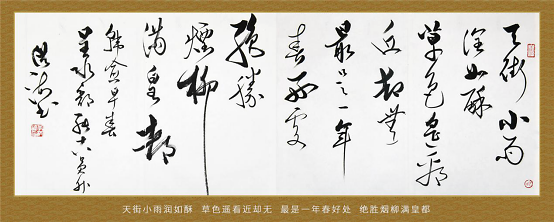 天街小雨
潤如酥
草色遙看
近却無
最是一年
春好處
絕勝
煙柳
滿皇都
韓愈早春
呈水部張十八員外
天街小雨润如酥 草色遥看近却无 最是一年春好处 绝胜烟柳满皇都